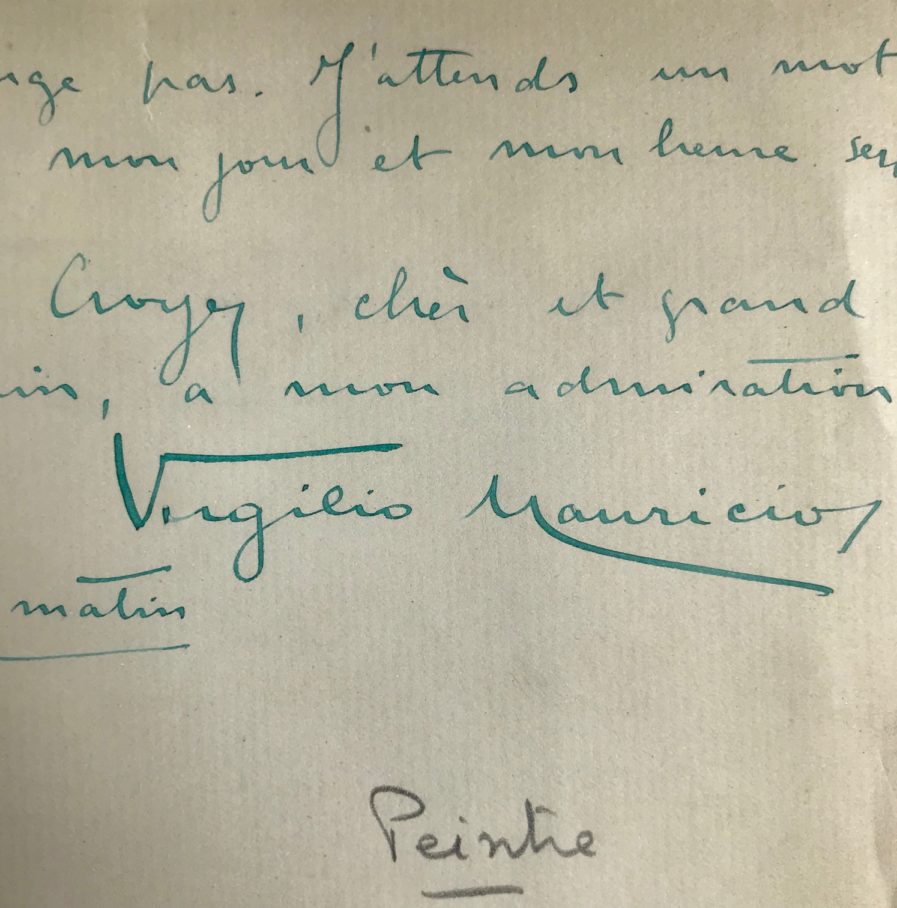 nge pas. J'attends un mot
mon jour et mon heure ser
Croyez, chèr et grand
in, à mon admiration
Virgilio Mauricio
matin
Peintre